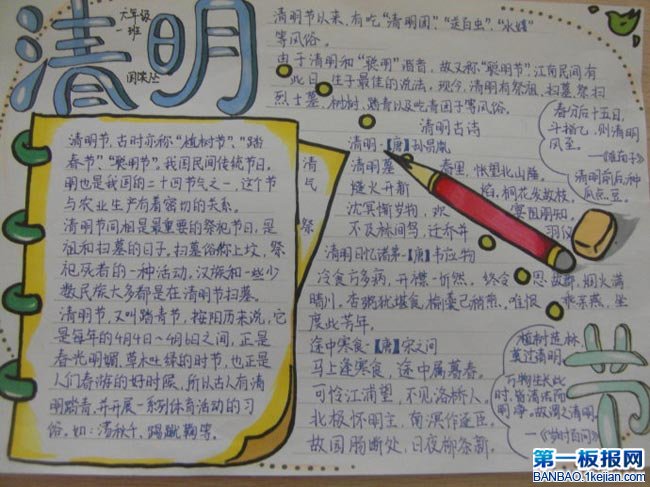 清明
六年级
一班
清明节,古时亦称"植树节"、"踏
春节"、"聪明节"。我国民间传统节日。
明也是我国的二十四节气之一,这个节
与农业生产有着密切的关系。
清明节同相是最重要的祭祀节日,是
祖和扫墓的日子。扫墓俗称上坟,祭
祀死者的一种活动。汉族和一些少
数民族大多都是在清明节扫墓。
清明节,又叫踏青节,按阳历来说,它
是每年的4月4日~6日之间,正是
春光明媚、草木吐绿的时节,也正是
人们春游的好时候,所以古人有清
明踏青,并开展一系列体育活动的习
俗。如:荡秋千,踢蹴鞠等。
清
民
祭
清明节以来,有吃"清明团"、
等风俗。
由于清明和"聪明"谐音,故又称"聪明节"。江南民间有
此日 生子最佳的说法,现今,清明有祭祖、扫墓、祭扫
烈士墓、树树、踏青以及吃青团子等风俗。
清明古诗
清明·【唐】孙昌胤
清明暮 春里,怅望北山陲。
燧火开新 焰,桐花发故枝。
沈冥惭岁物,欢
不及林间鸟,迁乔并 羽仪
清明日忆诸弟-【唐】韦应物
冷食方多病,开襟一忻然。终令 思故郡,烟火满
晴川。杏粥犹堪食,榆羹已稍煎。唯恨 乖亲燕,坐
度此芳年。
途中寒食-【唐】宋之问
马上逢寒食,途中属暮春。
可怜江浦望,不见洛桥人。
北极怀明主,南溟作逐臣。
故园肠断处,日夜柳条新。
春分后十五日,
斗指乙,则清明
风至。
清明前后,种
瓜点豆。
植树造林,
莫过清明。
万物生长此
时,皆清洁而
明净。故谓之清明。
节
第一板报网
BANBAO.1kejian.COM